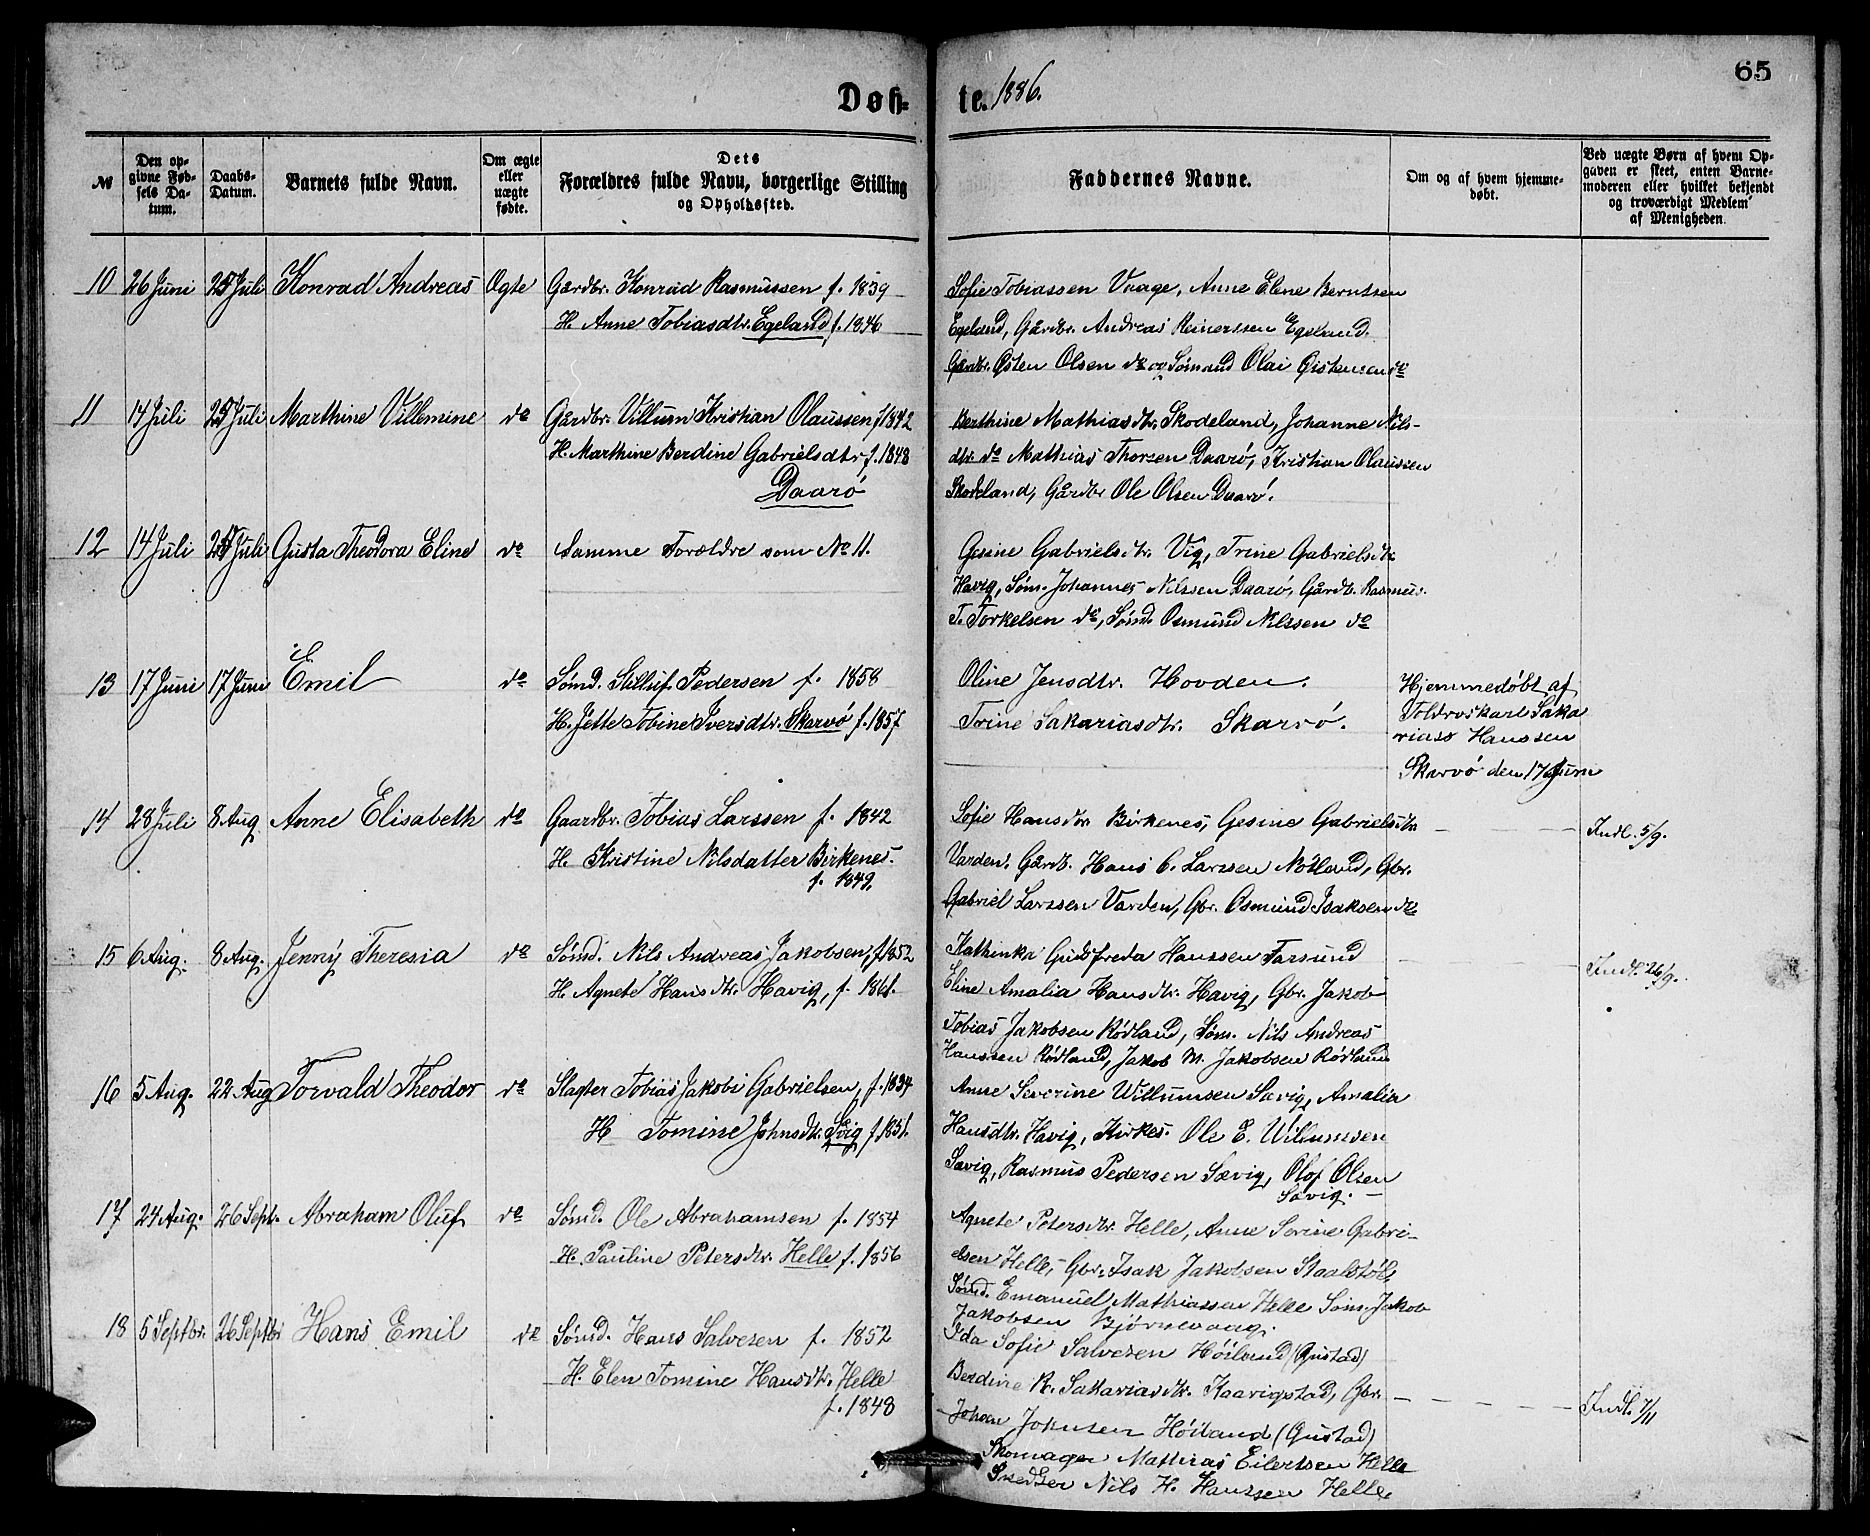 65
Døb-te. 1886.
№
Den opgivne Fødsels Datum.
Daabs-Datum.
Barnets fulde Navn.
Om ægte eller uægte fødte.
Dets Forældres fulde Navn, borgerlige Stilling og Opholdssted.
Faddernes Navne.
Om og af hvem hjemmedøbt.
Ved uægte Børn af hvem Opgaven er skeet, enten Barnemoderen eller hvilket bekjendt og troværdigt Medlem af Menigheden.
10 26 Juni 25 Juli Konrad Andreas Ægte Gardbr. Konrad Rasmussen f. 1839
H. Anne Tobiasdtr. Egeland f. 1846
Sofie Tobiassen Vaage, Anne Elene Berntsen
Egeland, Gårdbr. Andreas Reinerssen Egeland.
Gårdbr. Østen Olsen do og Sömand Olai Øistensen do
11 14 Juli 25 Juli Marthine Villemine do Gårdbr. Villum Kristian Olaussen f 1842
H. Marthine Berdine Gabrielsdtr f. 1848
Daarö
Berthine Mathiasdtr. Skodeland, Johanne Nils-
dtr. do Mathias Thorsen Daarö, Kristian Olaussen
Skodeland, Gårdbr Ole Olsen Daarö.
12 14 Juli 25 Juli Gusta Theodora Eline do Samme Forældre som No 11.
Gesine Gabrielsdtr. Vig, Trine Gabrielsdtr.
Havig, Söm. Johannes Nilssen Daarö, Gårdb. Rasmus
T. Torkelsen do, Sömd. Osmund Nilssen do
13 17 Juni 17 Juni Emil do Sömd. Stilluf Pedersen f. 1858
H. Jette Tobine Iversdtr. Skarvö f. 1857
Oline Jensdtr. Hovden.
Trine Sakariasdtr. Skarvö.
Hjemmedöbt af
Toldroskarl Saka
rias Hanssen
Skarvö den 17 Juni
14 28 Juli 8 Aug. Anne Elisabeth do Gaardbr. Tobias Larssen f. 1842
H. Kristine Nilsdatter Birkenes.
f. 1849.
Sofie Hansdtr Birkenes, Gesine Gabrielsdtr.
Varden. Gårdb. Hans C. Larssen Nödland, Gbr.
Gabriel Larssen Varden, Gbr. Osmund Isaksen do
Indl. 5/9.
15 6 Aug. 8 Aug. Jenny Theresia do Sömd. Nils Andreas Jakobsen, f. 1852
H. Agnete Hansdtr. Havig, f. 1861.
Kathinka Gudfreda Hanssen Farsund
Eline Amalia Hansdtr. Havig, Gbr. Jakob
Tobias Jakobsen Rödland, Söm. Nils Andreas
Hanssen Rödland, Jakob M. Jakobsen Rödland
Indl. 26/9.
16 5 Aug. 22 Aug Torvald Theodor do Slagter Tobias Jakobi Gabrielsen, f. 1834
H Tomine Johnsdtr. Svig f. 1851.
Anne Severine Willumsen Sævig, Amalia
Hansdtr. Havig, Kirkes. Ole E. Willumsen
Sævig, Rasmus Pedersen Sævig, Olof Olsen
Sævig.
17 24 Aug. 26 Sept. Abraham Oluf do Sömd. Ole Abrahamsen f. 1854
H. Pauline Petersdtr. Helle f. 1856
Agnete Petersdtr. Helle, Anne Sorine Gabri-
elsen Helle, Gbr. Isak Jakobsen Staalstöl,
Sömd. Emanuel Mathiassen Helle Söm. Jakob
Jakobsen Björnevaag.
18 5 Septbr. 26 Septbr Hans Emil do Sömd. Hans Salvesen f. 1852
H. Elen Tomine Hansdtr. Helle
f. 1848
Ida Sofie Salvesen Höiland (Qustad)
Berdine R. Sakariasdtr. Kaavigstad, Gbr.
Johan Johnsen Höiland (Qustad)
Skomager Mathias Eilertsen Helle
Snedker Nils H. Hanssen Helle
Indl. 7/11